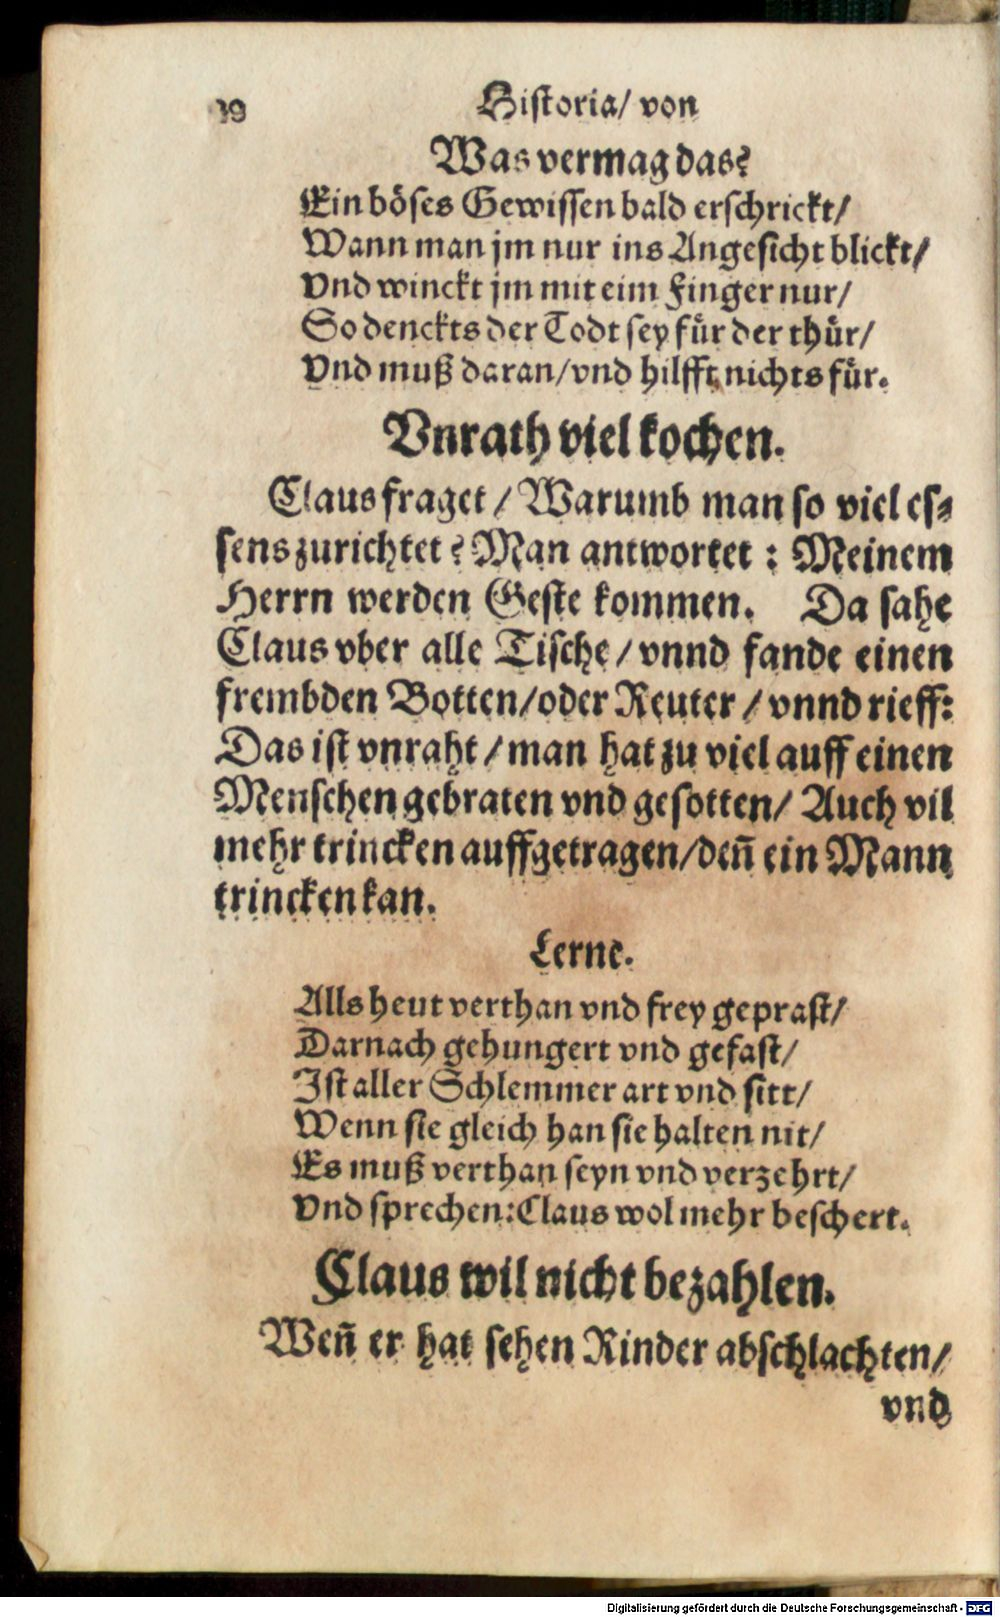 Historia/ von
Was vermag das?
Ein böses Gewissen bald erschrickt/
Wann man jm nur ins Angesicht blickt/
Vnd winckt jm mit eim Finger nur/
So denckts der Todt sey für der thür/
Vnd muß daran/vnd hilfft nichts für.
Vnrath viel kochen.
Claus fraget / Warumb man so viel es⸗
sens zurichtet? Man antwortet : Meinem
Herrn werden Geste kommen. Da sahe
Claus vber alle Tische / vnnd fande einen
frembden Botten/oder Reuter / vnnd rieff:
Das ist vnraht / man hat zu viel auff einen
Menschen gebraten vnd gesotten/ Auch vil
mehr trincken auffgetragen/den̄ ein Mann
trincken kan.
Lerne.
Alls heut verthan vnd frey geprast/
Darnach gehungert vnd gefast/
Ist aller Schlemmer art vnd sitt/
Wenn sie gleich han sie halten nit/
Es muß verthan seyn vnd verzehrt/
Vnd sprechen:Claus wol mehr beschert.
Claus wil nicht bezahlen.
Wen̄ er hat sehen Rinder abschlachten/
vnd
Digitalisierung gefördert durch die Deutsche Forschungsgemeinschaft - DFG